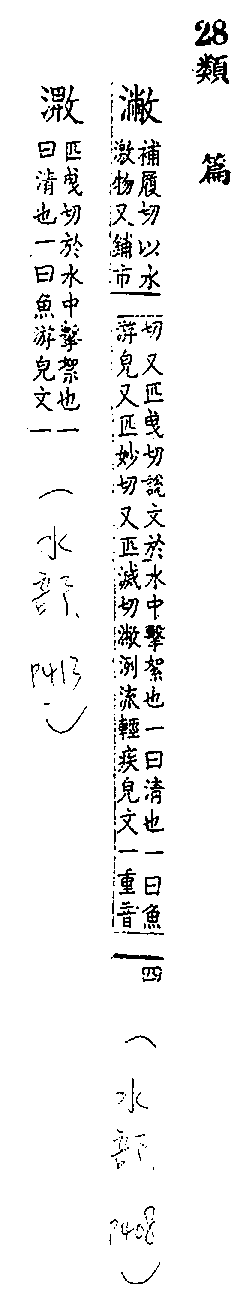 28類篇
潎 補履切以水激物又鋪市
切又匹曵切說文於水中擊絮也一曰清也一曰魚游皃又匹妙切又匹滅切潎洌流輕疾皃文一重音四
(水部 P408)
潎 匹曵切於水中擊絮也一曰清也一曰魚游皃文一
(水部 P413)